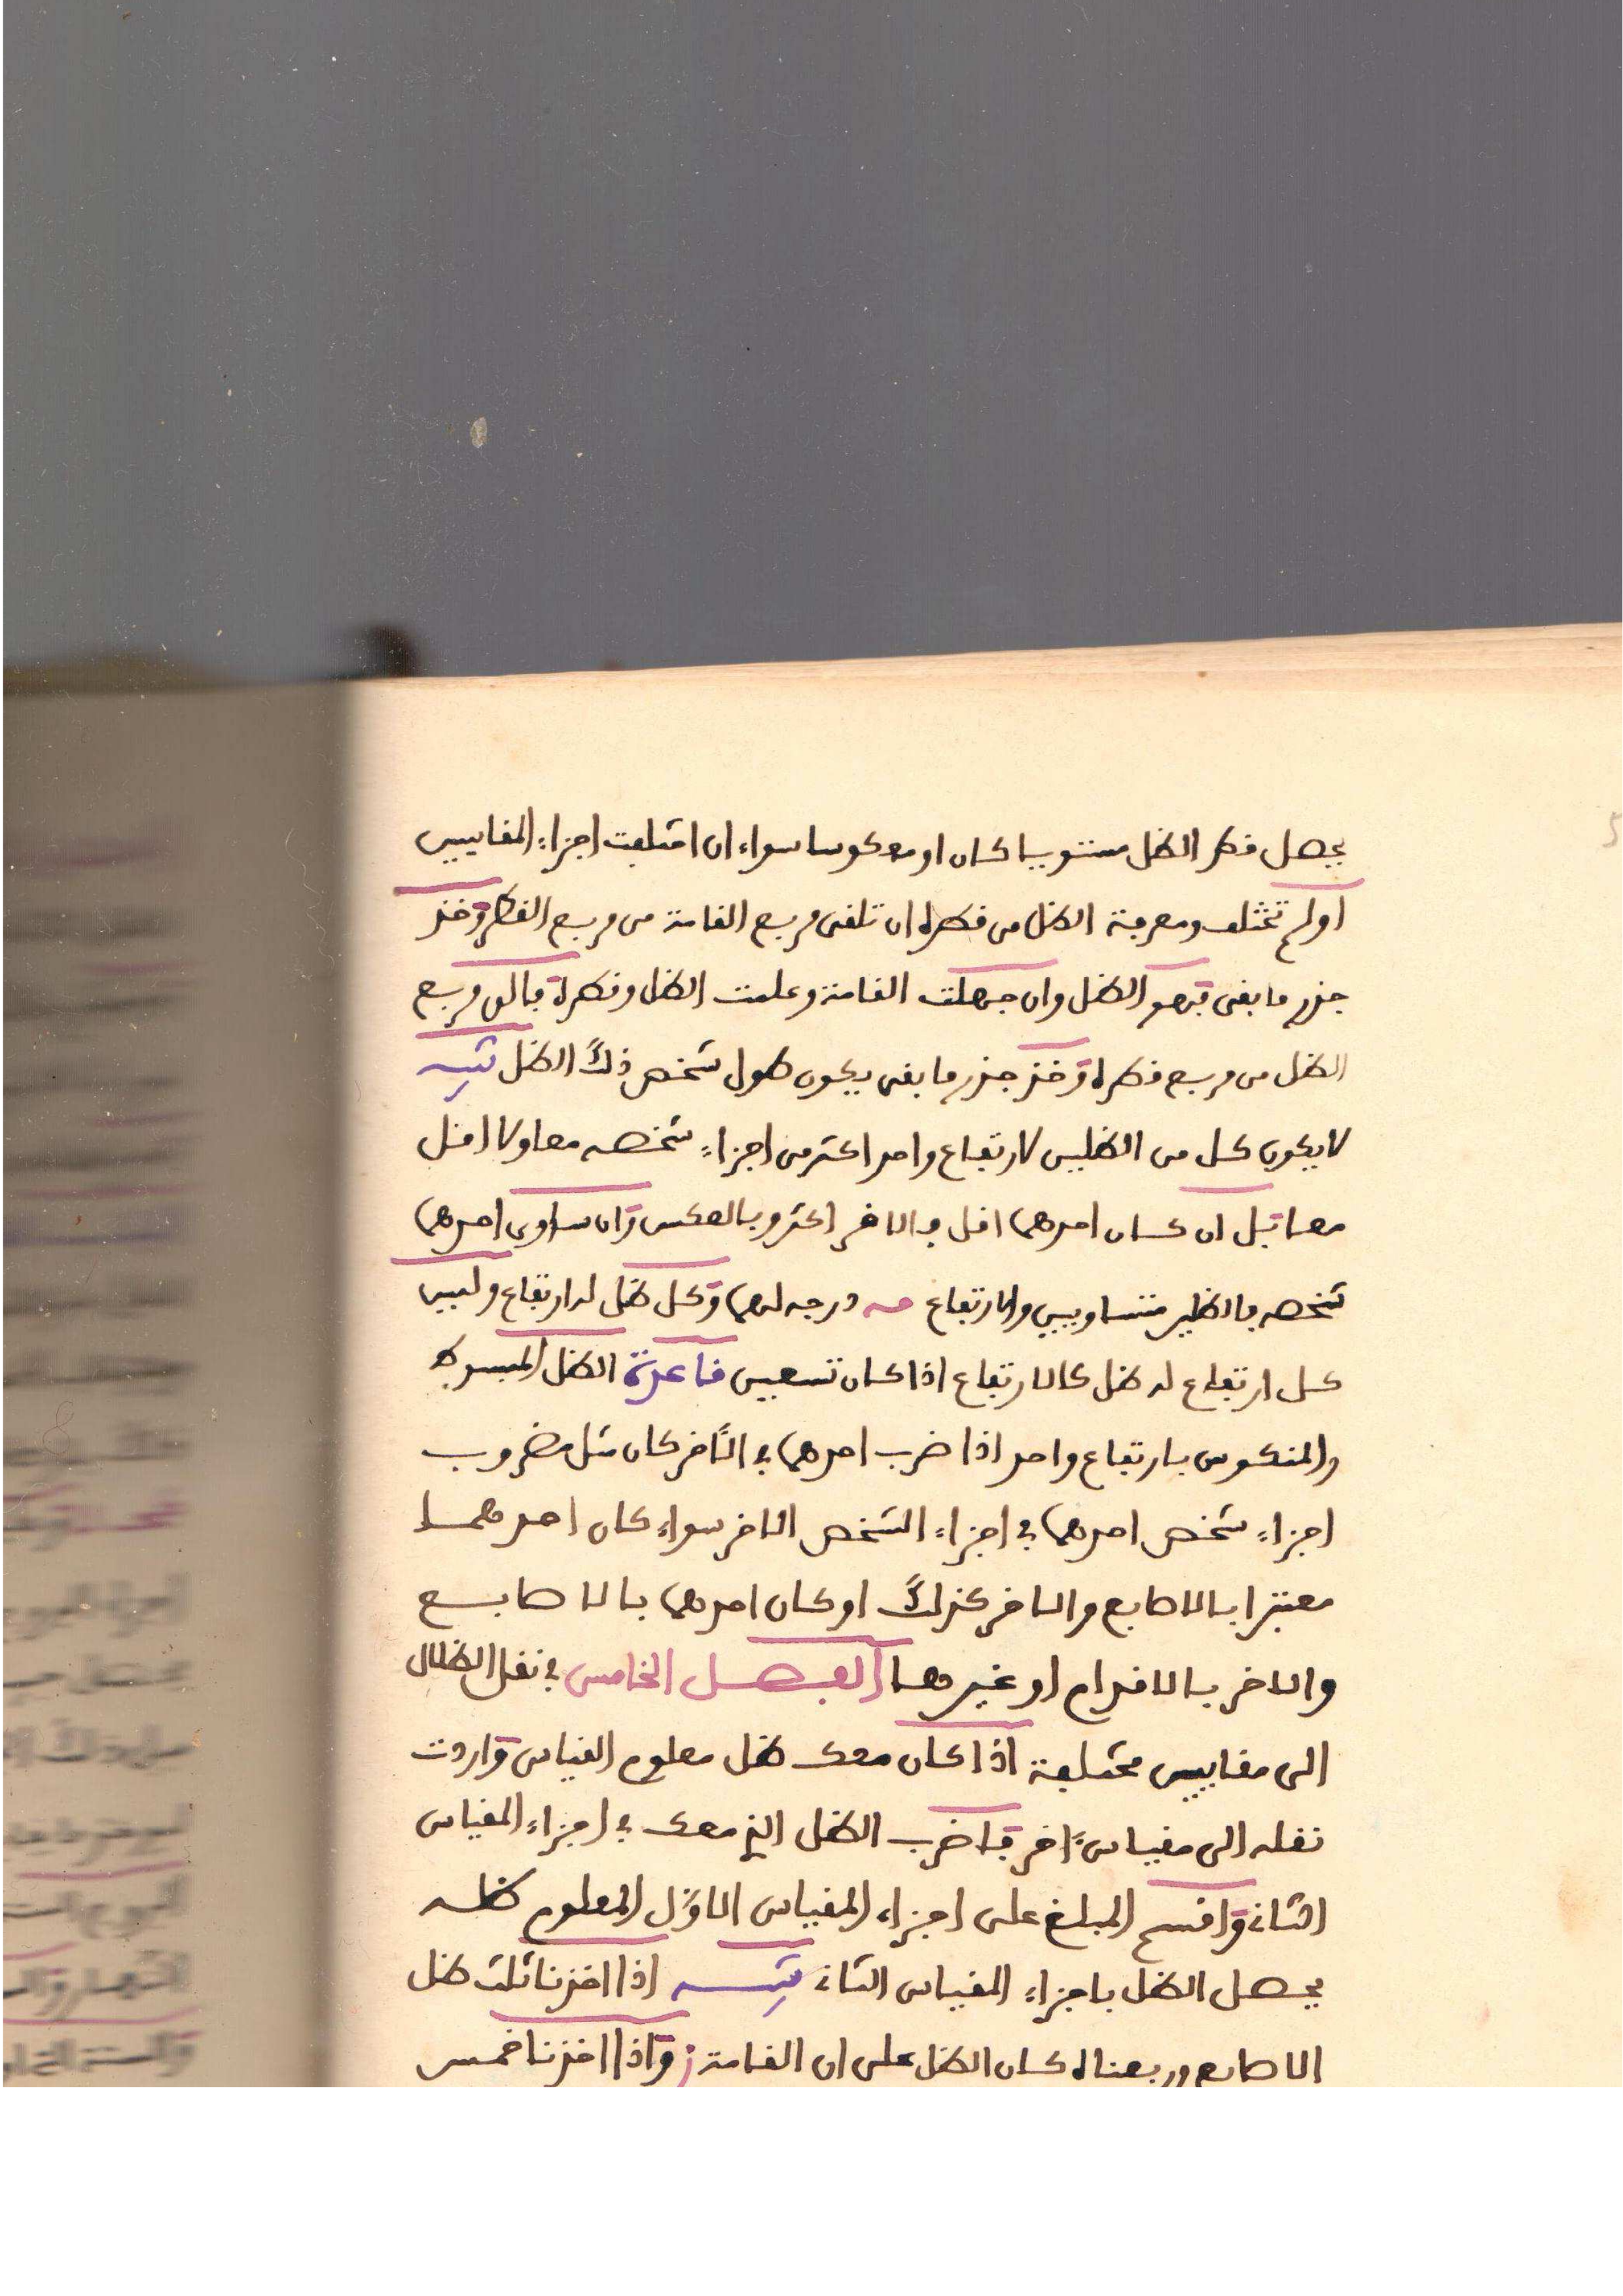 يحصل قطر الظل مستويا كان او معكوسا سواء ان اختلفت اجزاء المقاييس
او لم تختلف ومعرفة الظل من قطره ان تلقى مربع القامة من مربع القطر وخذ
جذر ما بقى فهو الظل وان جهلت القامة وعلمت الظل وقطره فالق مربع
الظل من مربع قطره وخذ جذر ما بقى يكون طول شخص ذلك الظل تنبيه
لا يكون كل من الظلين لارتفاع واحد اكثر من اجزاء شخصه معا ولا اقل
معا بل ان كان احدهما اقل فالاخر اكثر وبالعكس وان ساوى احدهما
شخصه فالظلين متساويين والارتفاع مه درجه لهما وكل ظل له ارتفاع وليس
كل ارتفاع له ظل كالارتفاع اذا كان تسعين قاعدة الظل المبسوط
والمنكوس بارتفاع واحد اذا ضرب احدهما في الآخر كان مثل مضروب
اجزاء شخص احدهما في اجزاء الشخص الاخر سواء كان احدهما
معتبرا بالاصابع والاخر كذلك او كان احدهما بالاصابع
والاخر بالاقدام او غيرهما الفصل الخامس في نقل الظلال
الى مقاييس مختلفة اذا كان معك ظل معلوم القياس واردت
نقله الى مقياس آخر فاضرب الظل الذي معك في اجزاء المقياس
الثاني واقسم المبلغ على اجزاء المقياس الاول المعلوم ظله
يحصل الظل باجزاء المقياس الثاني تنبيه اذا اخذنا ثلث ظل
الاصابع وربعناه كان الظل على ان القامة ز واذا اخذنا خمس